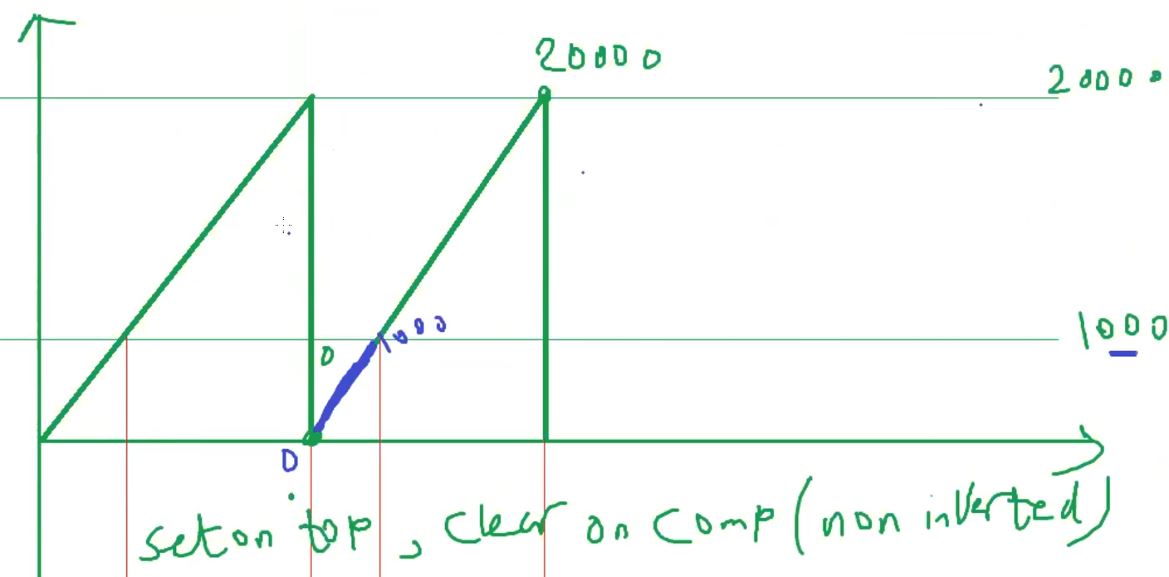 20000
20000
1000
1000
0
0
set on top, clear on comp (non inverted)